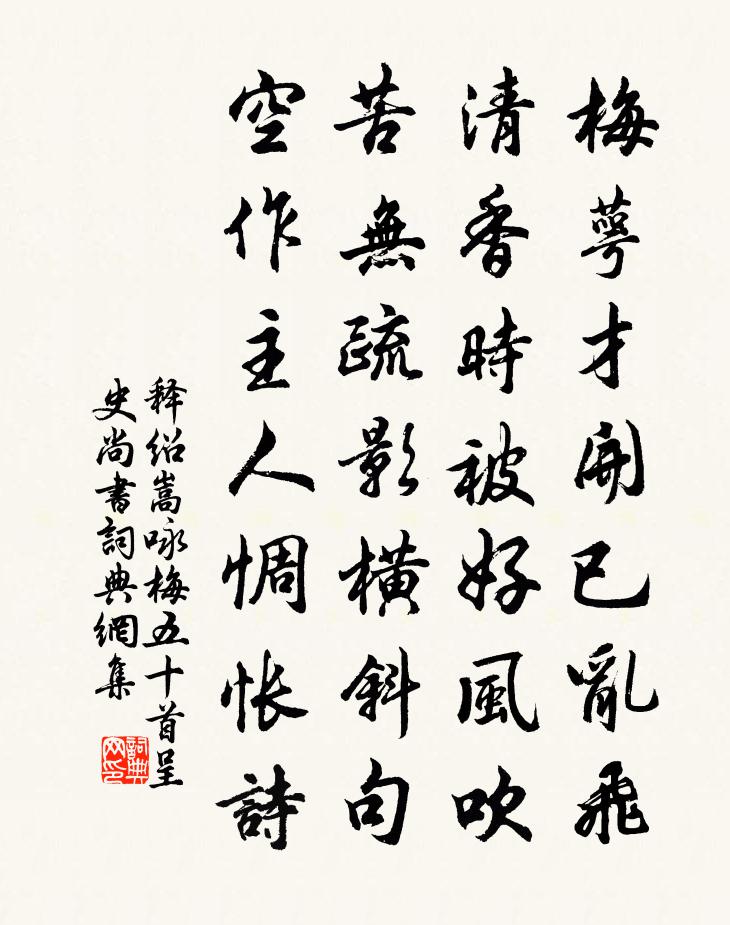 梅萼才開已亂飛
清香時被好風吹
苦無疏影橫斜句
空作主人惆悵詩
释绍嵩咏梅五十首呈
史尚書詞典網集
詞典
网印